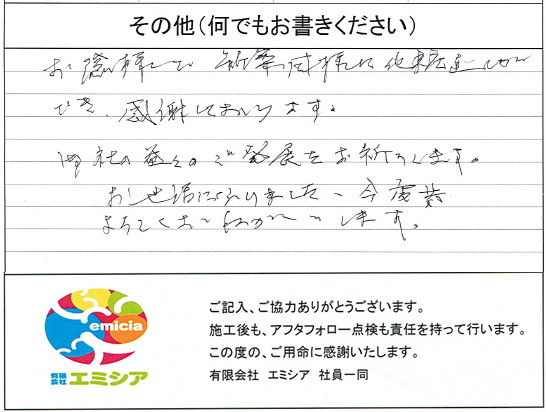 その他(何でもお書きください)
お陰様で 新築同様に
でき、感謝しております。
御社の益々のご発展をお祈りします。
お世話になりました、今後共
よろしくお願い します。
emicia
有限会社 エミシア
ご記入、ご協力ありがとうございます。
施工後も、アフタフォロー点検も責任を持って行います。
この度の、ご用命に感謝いたします。
有限会社 エミシア 社員一同